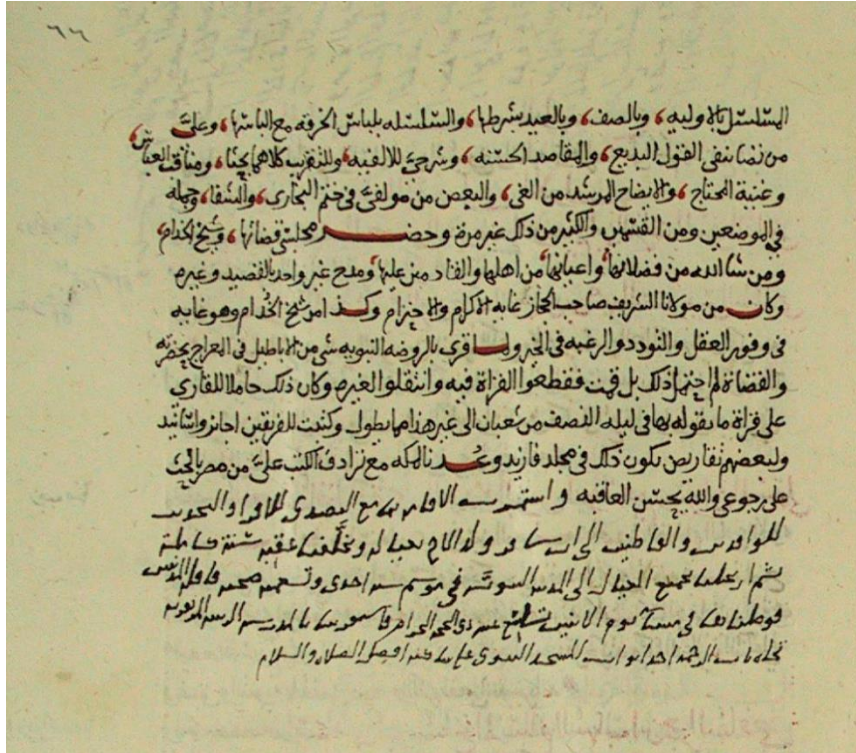 ٦٦
المسلسل بالاوليه وبالصف وبالعيد بشرطها والسلسله بلباس الخرقه مع الباسها وعلىّ
من تصانيفى القول البديع والمقاصد الحسنه وشرحىّ للالفيه وللتقريب كلاهما بحثا ومناقب العباس
وغنية المحتاج والايضاح المرشد من الغى والبعض من مولفىّ فى ختم البخارى والشفا وجمله
فى الموضعين ومن القسمين والكثير من ذلك غير مرة وحضر مجلسى قضاتها وشيخ الخدام
ومن شا الله من فضلائها واعيانها من اهلها والقادمين عليها ومدح غير واحد بالقصيد وغيره
وكان من مولانا الشريف صاحب الحجاز غايه الاكرام والاحترام وكذا من شيخ الخدام وهو غايه
فى وفور العقل والتودد والرغبه فى الخير ولما قرى بالروضه النبويه شى من الاباطيل فى المعراج بحضرته
والقضاة لم احتمل ذلك بل قمت فقطعوا القراة فيه وانتقلوا لغيره وكان ذلك حاملا للقارى
على قراة ما يقوله بها فى ليله النصف من شعبان الى غير هذا مما يطول وكتبت للفريقين اجائز واسانيد
ولبعضهم تقاريض يكون ذلك فى مجلد فازيد وعدنا لمكه مع ترادف الكتب علىّ من مصر بالحث
على رجوعى والله يحسن العاقبه واستمرت الاقامه بها مع التصدى للاقرا والتحديث
للوافدين والقاطنين الى
ثم ارتحلنا بجميع العيال الى المدينه النبويه فى موسم سنه احدى وتسعمايه صحبه قافله
فوصلناها فى يوم الاثنين عشر ذى الحجه الحرام بالمدرسه
تجاه باب الرحمه احد ابواب المسجد النبوى على افضل الصلاه والسلام